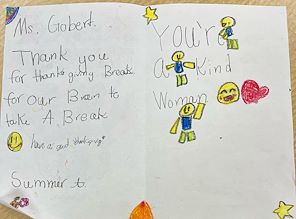 Ms. Gobert.
Thank you
for thanksgiving Break
for our Brain to
take A Break
have a good thanksgiving
Summer t.
You're
A Kind
Woman